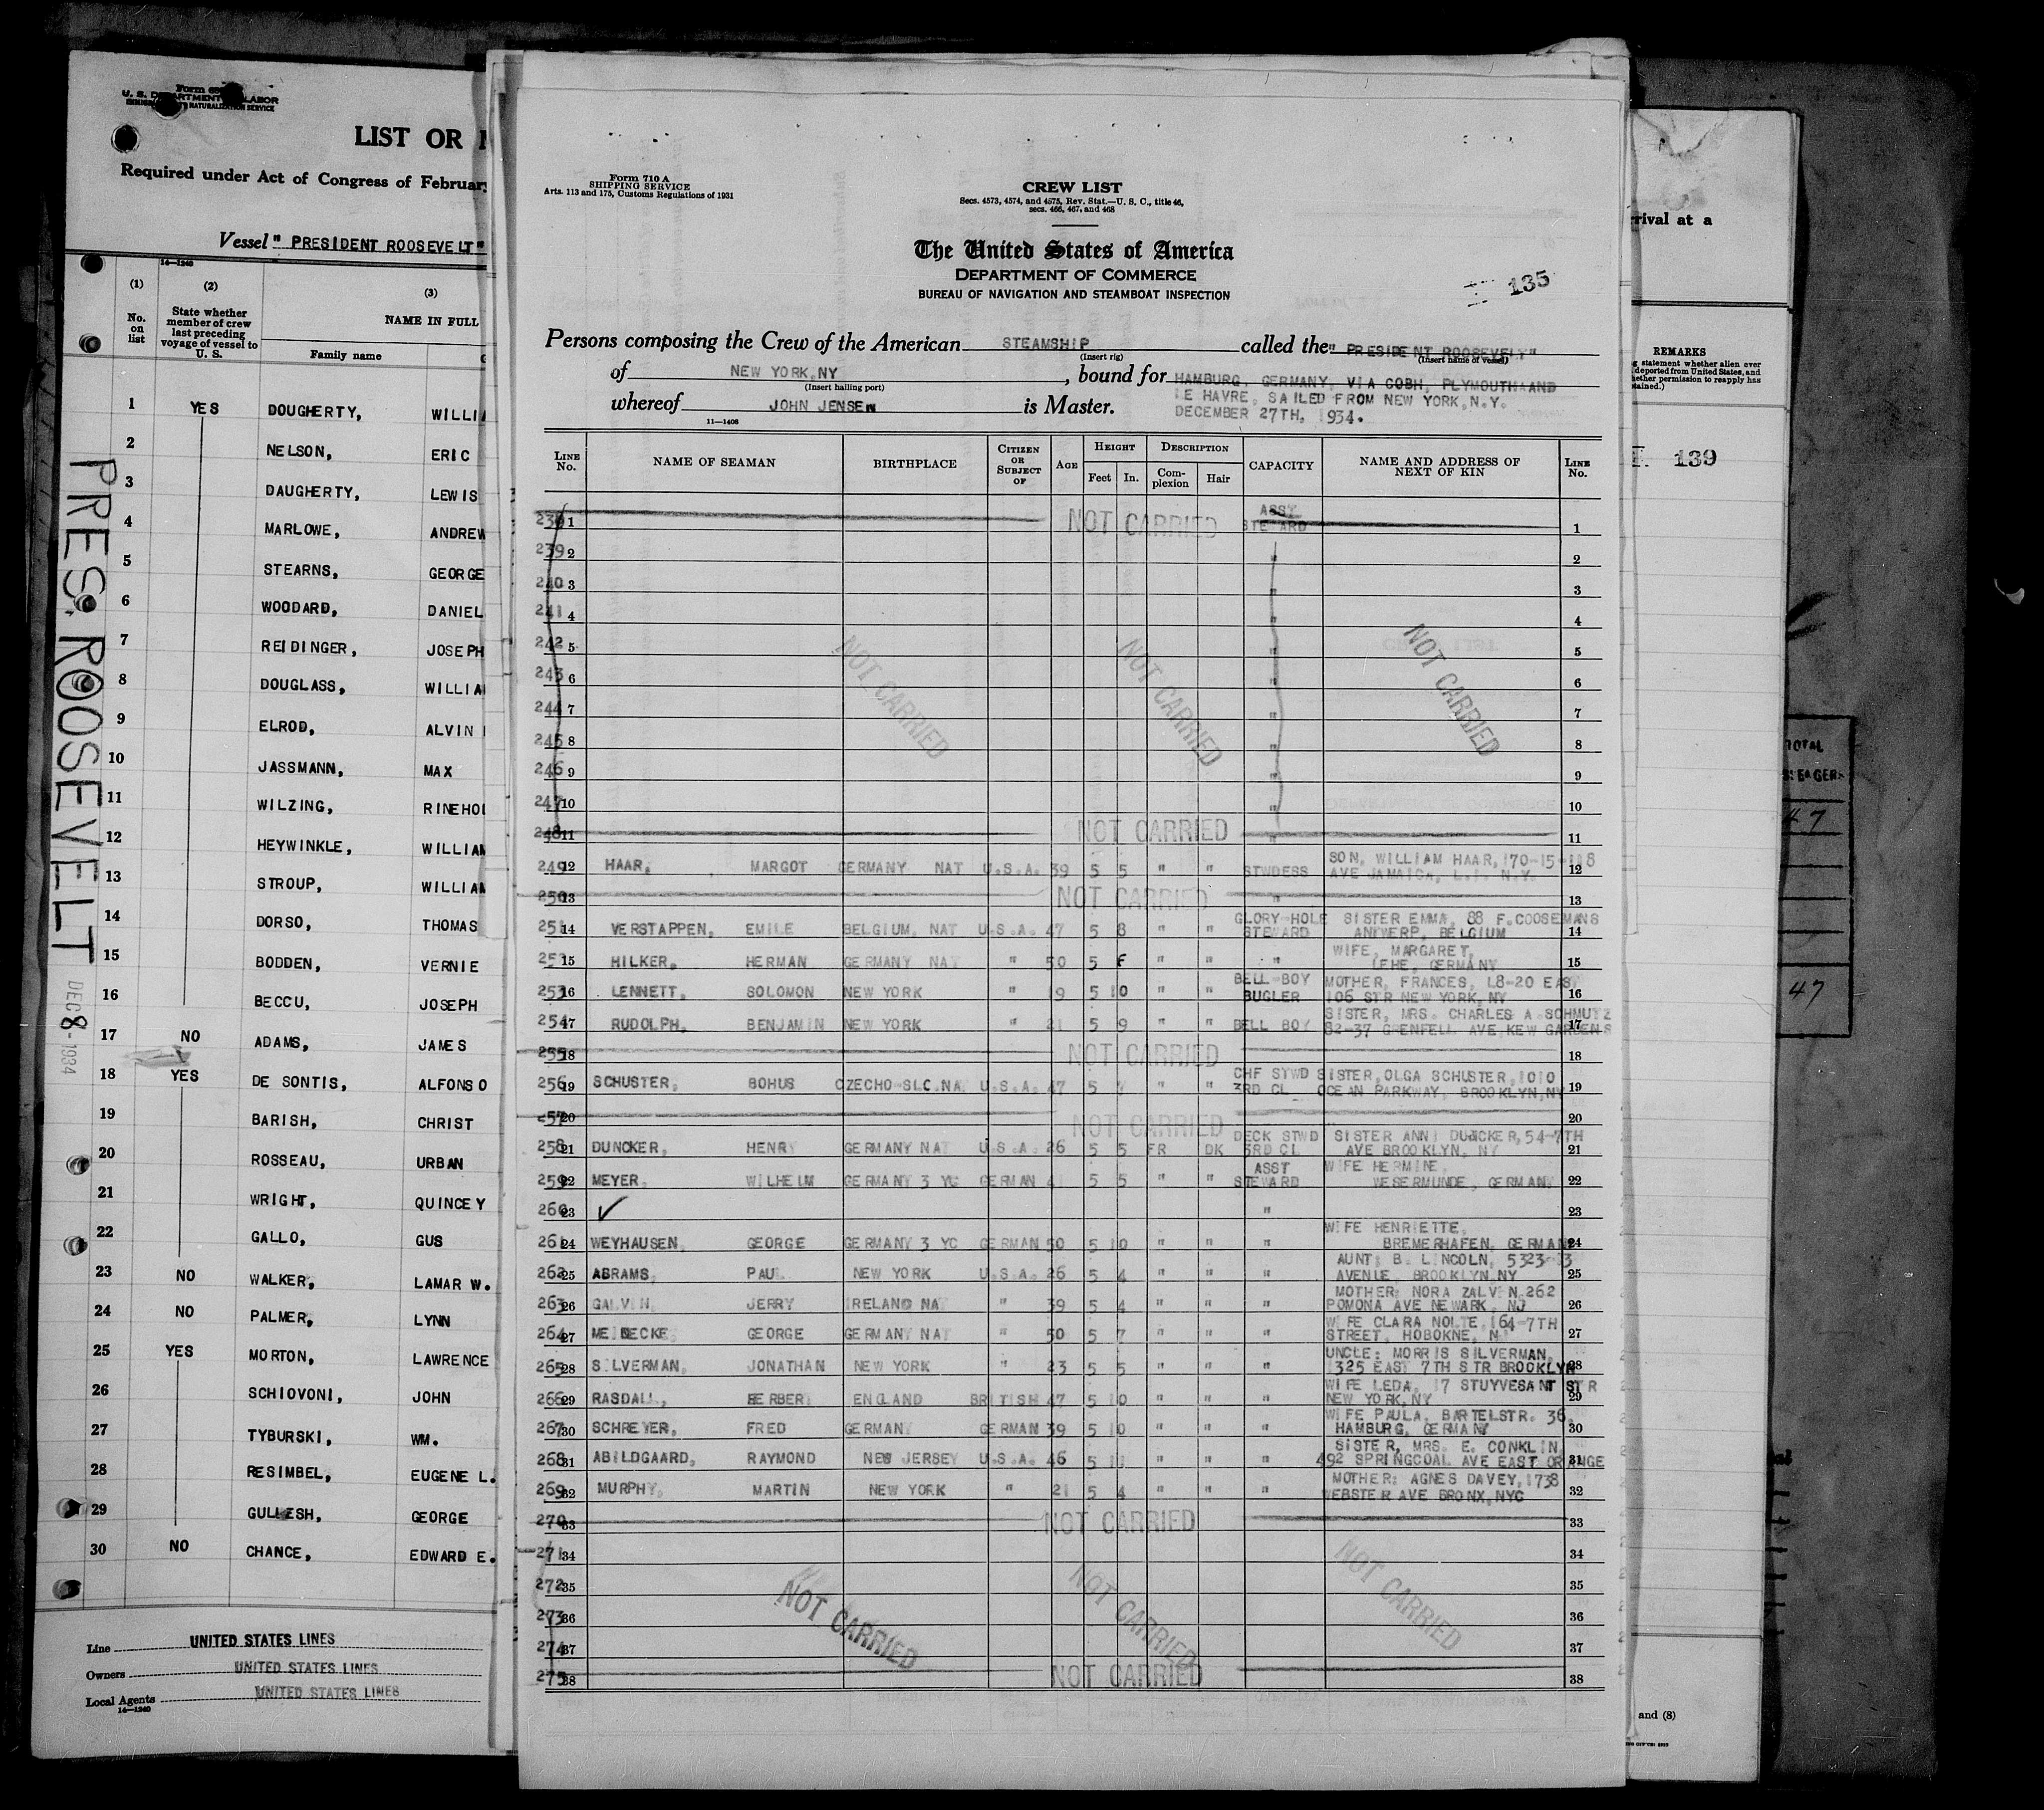 U. S. DEPARTMENT LABOR
LIST OR
Required under Act of Congress of Februar
Vessel " PRESIDENT ROOSEVELT "
14—1240
(1) (2) (3)
No. on list
State whether member of crew last preceding voyage of vessel to U. S.
NAME IN FULL
Family name
1 YES DOUGHERTY,
2 NELSON, ERIC
3 DAUGHERTY, LEWIS
4 MARLOWE, ANDREW
5 STEARNS, GEORGE
6 WOODARD, DANIEL
7 REIDINGER, JOSEPH
8 DOUGLASS,
9 ELROD, ALVIN
10 JASSMANN, MAX
11 WILZING,
12 HEYWINKLE, WILLIAM
13 STROUP, WILLIAM
14 DORSO, THOMAS
15 BODDEN, VERNIE
16 BECCU, JOSEPH
17 NO ADAMS, JAMES
18 YES DE SONTIS, ALFONSO
19 BARISH, CHRIST
20 ROSSEAU, URBAN
21 WRIGHT, QUINCEY
22 GALLO, GUS
23 NO WALKER, LAMAR W.
24 NO PALMER, LYNN
25 YES MORTON, LAWRENCE
26 SCHIOVONI, JOHN
27 TYBURSKI, WM.
28 RESIMBEL, EUGENE L.
29 GULLESH, GEORGE
30 NO CHANCE, EDWARD E.
PRES. ROOSEVELT
DEC 8 - 1934
Line UNITED STATES LINES
Owners UNITED STATES LINES
Local Agents UNITED STATES LINES
14—1240
Form 710 A
SHIPPING SERVICE
Arts. 113 and 175, Customs Regulations of 1931
CREW LIST
Secs. 4573, 4574, and 4575, Rev. Stat.—U. S. C., title 46,
secs. 466, 467, and 468
The United States of America
DEPARTMENT OF COMMERCE
BUREAU OF NAVIGATION AND STEAMBOAT INSPECTION
135
Persons composing the Crew of the American STEAMSHIP called the " PRESIDENT ROOSEVELT"
(Insert rig) (Insert name of vessel)
of NEW YORK,NY , bound for HAMBURG, GERMANY, VIA COBH, PLYMOUTH AND
(Insert hailing port)
LE HAVRE, SAILED FROM NEW YORK,N.Y.
whereof JOHN JENSEN is Master.
DECEMBER 27TH, 1934.
11—1408
LINE No. NAME OF SEAMAN BIRTHPLACE CITIZEN OR SUBJECT OF AGE HEIGHT Feet In. DESCRIPTION Complexion Hair CAPACITY NAME AND ADDRESS OF NEXT OF KIN LINE No.
1 NOT CARRIED ASST STEWARD 1
239 2 " 2
240 3 " 3
241 4 " 4
242 5 " 5
243 6 " 6
244 7 " 7
245 8 " 8
246 9 " 9
247 10 " 10
NOT CARRIED NOT CARRIED NOT CARRIED
248 11 NOT CARRIED " 11
249 12 HAAR, MARGOT GERMANY NAT U.S.A. 39 5 5 " " STWDESS SON, WILLIAM HAAR, 170-15-118
AVE JAMAICA, L.I. N.Y. 12
250 13 NOT CARRIED " 13
251 14 VERSTAPPEN, EMILE BELGIUM, NAT U.S.A. 47 5 8 " " GLORY-HOLE STEWARD SISTER EMMA, 88 F.COOSEMANS
ANTWERP, BELGIUM 14
252 15 HILKER, HERMAN GERMANY NAT " 50 5 " " " WIFE, MARGARET,
LEHE, GERMANY 15
253 16 LENNETT, SOLOMON NEW YORK " 19 5 10 " " BELL-BOY BUGLER MOTHER, FRANCES, 18-20 EAST
106 STR NEW YORK, NY 16
254 17 RUDOLPH, BENJAMIN NEW YORK " 21 5 9 " " BELL BOY SISTER, MRS. CHARLES A SCHMUTZ
82-37 GRENFELL AVE,KEW GARDENS 17
255 18 NOT CARRIED 18
256 19 SCHUSTER, BOHUS CZECHO-SLC.NA. U.S.A. 47 5 7 " " CHF STWD 3RD CL SISTER,OLGA SCHUSTER,1010
OCEAN PARKWAY, BROOKLYN,NY 19
257 20 NOT CARRIED 20
258 21 DUNCKER, HENRY GERMANY NAT U.S.A. 26 5 5 FR DK DECK STWD 3RD CL SISTER ANNI DUNCKER,54-7TH
AVE BROOKLYN, NY 21
259 22 MEYER, WILHELM GERMANY 3 YC GERMAN 5 5 " " ASST STEWARD WIFE HERMINE,
WESERMUNDE, GERMANY 22
260 23 ✓ " 23
261 24 WEYHAUSEN, GEORGE GERMANY 3 YC GERMAN 50 5 10 " " " WIFE HENRIETTE,
BREMERHAFEN, GERMANY 24
262 25 ABRAMS, PAUL NEW YORK U.S.A. 26 5 4 " " " AUNT: B. LINCOLN, 5323-13
AVENUE, BROOKLYN,NY 25
263 26 GALVIN, JERRY IRELAND NAT " 39 5 4 " " " MOTHER: NORA ZALVEN,262
POMONA AVE NEWARK, NJ 26
264 27 MEINECKE, GEORGE GERMANY NAT " 50 5 7 " " " WIFE CLARA NOLTE, 164-7TH
STREET, HOBOKNE, NJ 27
265 28 SILVERMAN, JONATHAN NEW YORK " 23 5 5 " " " UNCLE: MORRIS SILVERMAN,
1325 EAST 7TH STR BROOKLYN 28
266 29 RASDALL, HERBERT ENGLAND BRITISH 47 5 10 " " " WIFE LEDA, 17 STUYVESANT STR
NEW YORK,NY 29
267 30 SCHREYER, FRED GERMANY GERMAN 39 5 10 " " " WIFE PAULA, BARTELSTR. 36,
HAMBURG, GERMANY 30
268 31 ABILDGAARD, RAYMOND NEW JERSEY U.S.A. 46 5 11 " " " SISTER, MRS. E. CONKLIN
492 SPRINGCOAL AVE EAST ORANGE 31
269 32 MURPHY, MARTIN NEW YORK " 21 5 4 " " " MOTHER: AGNES DAVEY,1738
WEBSTER AVE BRONX,NYC 32
270 33 NOT CARRIED 33
271 34 34
272 35 35
273 36 36
274 37 37
NOT CARRIED NOT CARRIED NOT CARRIED
275 38 NOT CARRIED 38
rrival at a
REMARKS
statement whether alien ever
deported from United States, and
whether permission to reapply has
139
TOTAL
47
47
and (8)